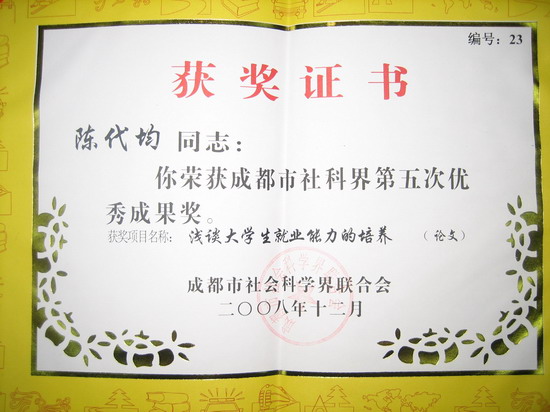 编号：23
获奖证书
陈代均 同志：
你荣获成都市社科界第五次优
秀成果奖。
获奖项目名称：浅谈大学生就业能力的培养 （论文）
成都市社会科学界联合会
二〇〇八年十二月